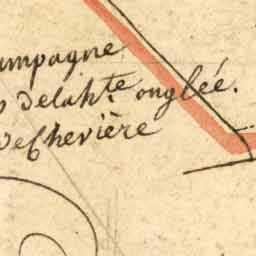 ampagne
delahte onglée.
de Chevière